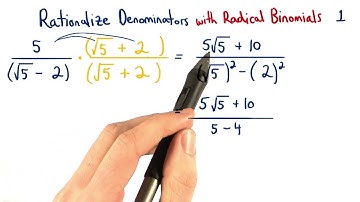 Rationalize Denominators with Radical Binomials 1
5/(√5 - 2) · (√5 + 2)/(√5 + 2) = (5√5 + 10)/((√5)² - (2)²)
(5√5 + 10)/(5 - 4)